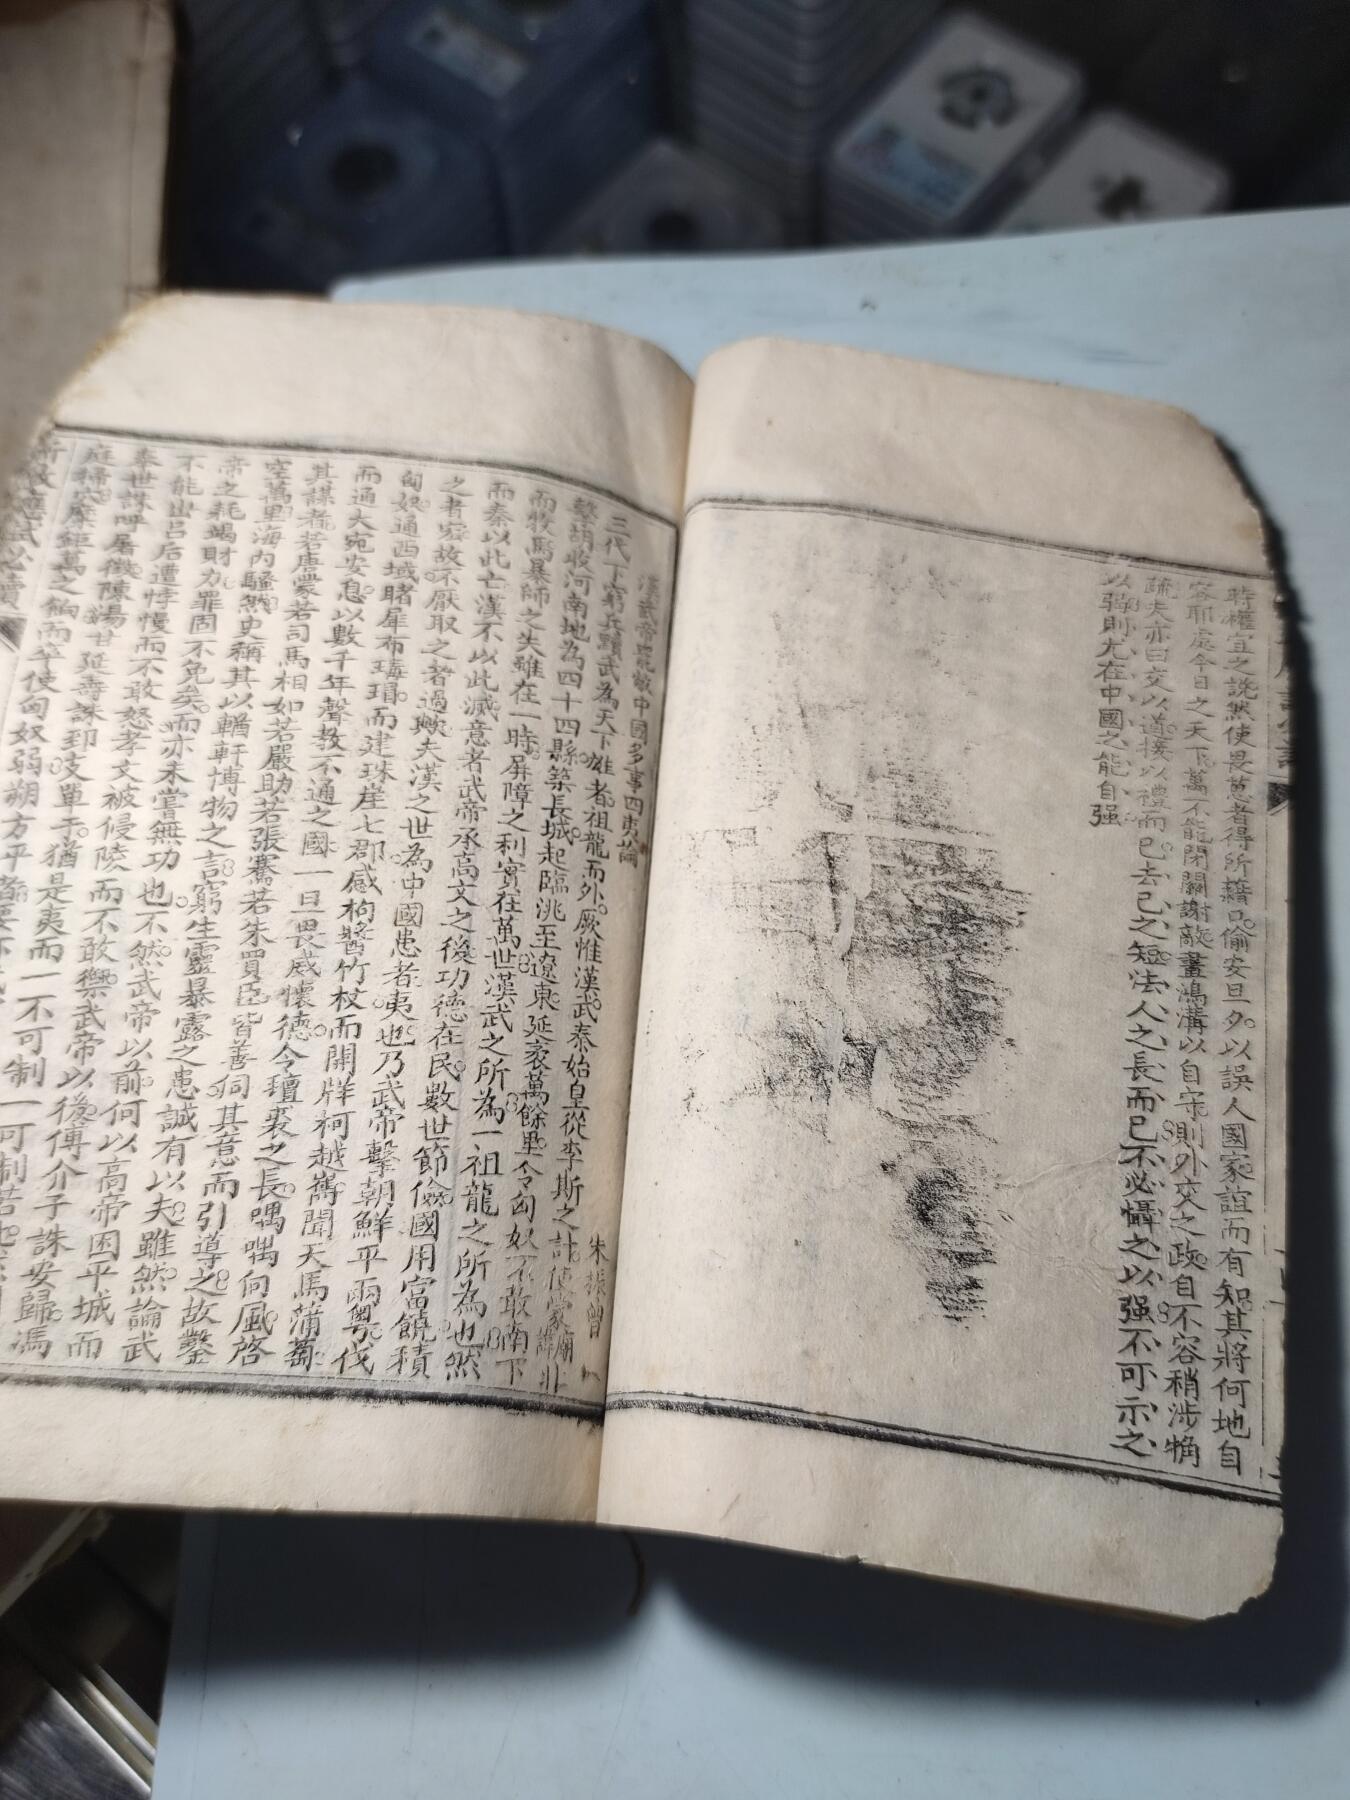 時權宜之說然使畏葸者得所藉口偷安旦夕以誤人國家誼而有知其將何地自
容耶處今日之天下萬不能閉關謝敵畫鴻溝以自守則外交之政自不容稍涉犄
疏夫亦曰交以道接以禮而已去己之短法人之長而已不必懾之以强不可示之
以弱則尤在中國之能自强
漢武帝罷敝中國多事四夷論
朱振曾
三代下窮兵黷武為天下雄者祖龍而外厥惟漢武秦始皇從李斯之計使蒙廟諱北
擊胡收河南地為四十四縣築長城起臨洮至遼東延袤萬餘里令匈奴不敢南下
而牧馬暴師之失雖在一時屏障之利實在萬世漢武之所為一祖龍之所為也然
而秦以此亡漢不以此滅意者武帝承高文之後功德在民數世節儉國用富饒積
之者宏故不厭取之者過歟夫漢之世為中國患者夷也乃武帝擊朝鮮平兩粵伐
匈奴通西域睹犀布瑇瑁而建珠崖七郡感枸醬竹杖而開牂柯越巂聞天馬蒲萄
而通大宛安息以數千年聲教不通之國一旦畏威懷德令氊裘之長喁喁向風啓
其謀者若唐蒙若司馬相如若嚴助若張騫若朱買臣皆善伺其意而引導之故鑿
空萬里海內騷然史稱其以輶軒博物之言窮生靈暴露之患誠有以夫雖然論武
帝之耗竭財力罪固不免矣而亦未嘗無功也不然武帝以前何以高帝困平城而
不能出呂后遭悖慢而不敢怒孝文被侵陵而不敢禦武帝以後傅介子誅安歸馮
奉世誅呼屠徵陳湯甘延壽誅郅支單于猶是夷而一不可制一可制若
庭掃穴糜鉅萬之餉而卒使匈奴弱朔方平
應試必讀